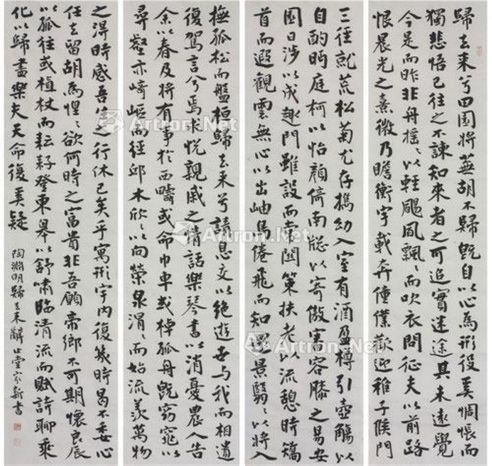 歸去来兮田園將蕪胡不歸既自以心為形役奚惆悵而
獨悲悟已往之不諫知来者之可追實迷途其未遠覺
今是而昨非舟搖々以輕颺風飄々而吹衣問征夫以前路
恨晨光之熹微乃瞻衡宇載奔僮僕歡迎稚子候門
三徑就荒松菊尤存攜幼入室有酒盈樽引壺觴以
自酌眄庭柯以怡顏倚南牕以寄傲審容膝之易安
園日涉以成趣門雖設而常關策扶老以流憩時矯
首而遐觀雲無心以出岫鳥倦飛而知還景翳々以將入
撫孤松而盤桓歸去来兮請息交以絕遊世與我而相遺
復駕言兮焉求悅親戚之情話樂琴書以消憂農人告
余以春及將有事於西疇或命巾車或棹孤舟既窈窕以
尋壑亦崎嶇而經邱木欣々以向榮泉涓々而始流羨萬物
之得時感吾生之行休已矣乎寓形宇內復幾時曷不委心
任去留胡為惶々欲何時之富貴非吾願帝鄉不可期懷良辰
以孤往或植杖而耘耔登東皋以舒嘯臨清流而賦詩聊乘
化以歸盡樂夫天命復奚疑
陶淵明歸去来辭止堂新書
Artron.Net
Artron.Net